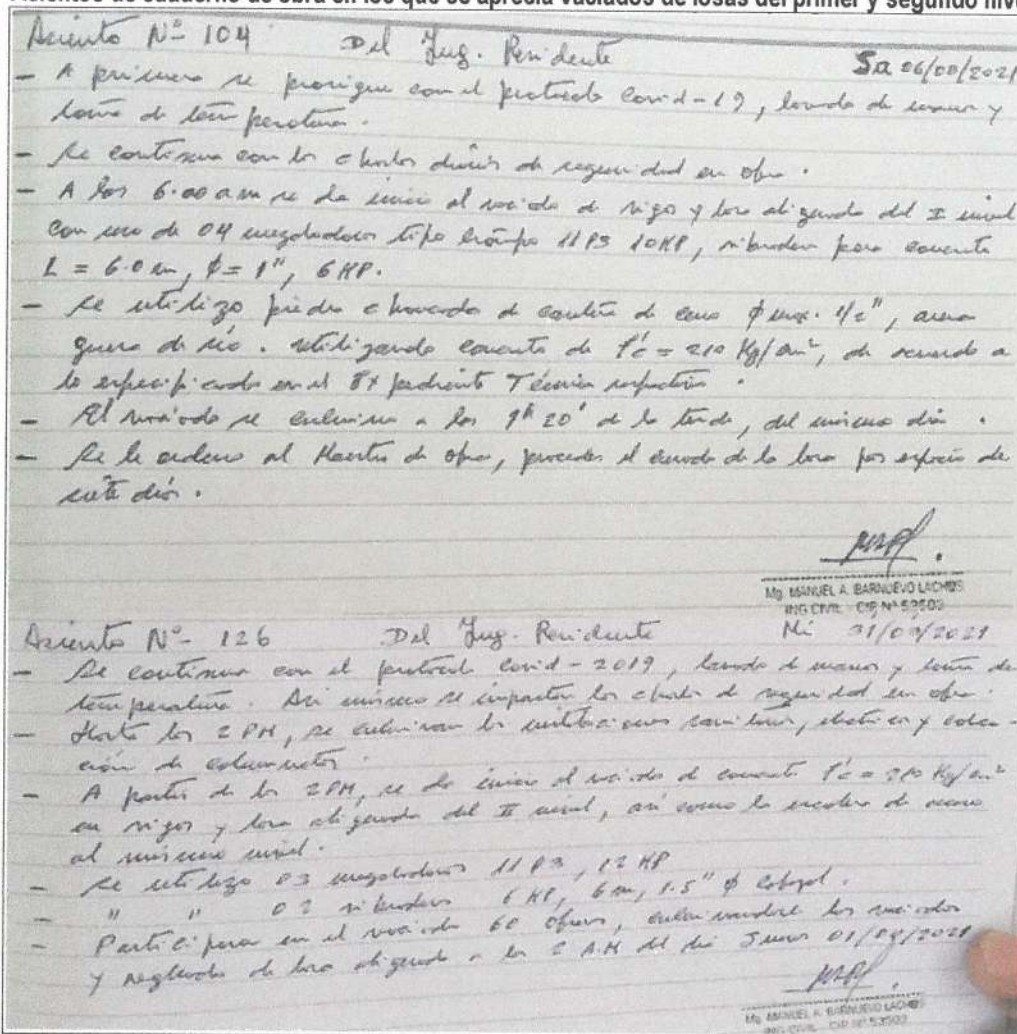 Asientos de cuaderno de obra en los que se aprecia vaciados de losas del primer y segundo nive
Asiento Nº 104 Del Ing. Residente
Sa 06/00/2021
- A primera se prosigue con el protocolo Covid-19, lavado de manos y
toma de temperatura.
- Se continua con las charlas de seguridad en obra.
- A las 6.00 am se da inicio al vaciado de vigas y losa aligerada del I nivel
con uso de 04 mezcladoras tipo trompo 11P3 10HP, vibrador para concreto
L = 6.0 m, ϕ = 1", 6 HP.
- Se utilizo piedra chancada de ϕ max. 1/2", arena
gruesa de río. utilizando concreto de f'c = 210 Kg/cm², de acuerdo a
lo especificado en el Expediente Técnico respectivo.
- El vaciado se culmina a las 9h 20' de la tarde, del mismo día.
- Se le ordena al Maestro de obra, proceder el curado de la losa por espacio de
siete días.
Mg. MANUEL A. BARNUEVO LACHOS
ING CIVIL - CIP Nº 53503
Asiento Nº- 126 Del Ing. Residente Mi 31/09/2021
- Se continua con el protocolo Covid-2019, lavado de manos y toma de
temperatura. Asi mismo se imparten las charlas de seguridad en obra.
- Hasta las 2 PM, se culminan las instalaciones sanitarias, electricas y coloca-
ción de columnetas.
- A partir de las 2PM, se da inicio al vaciado de concreto f'c = 210 Kg/cm²
en vigas y losa aligerada del II nivel, así como la escalera de acceso
al mismo nivel.
- Se utilizo 03 mezcladoras 11 P3, 12 HP
- " " 02 vibradores 6 HP, 6 m, 1.5" ϕ cabezal.
- Participaron en el vaciado 60 obreros, culminandose los vaciados
y regleado de losa aligerada a las 2 A.M del día Jueves 01/09/2021
Mg. MANUEL A. BARNUEVO LACHOS
ING CIVIL - CIP Nº 53503